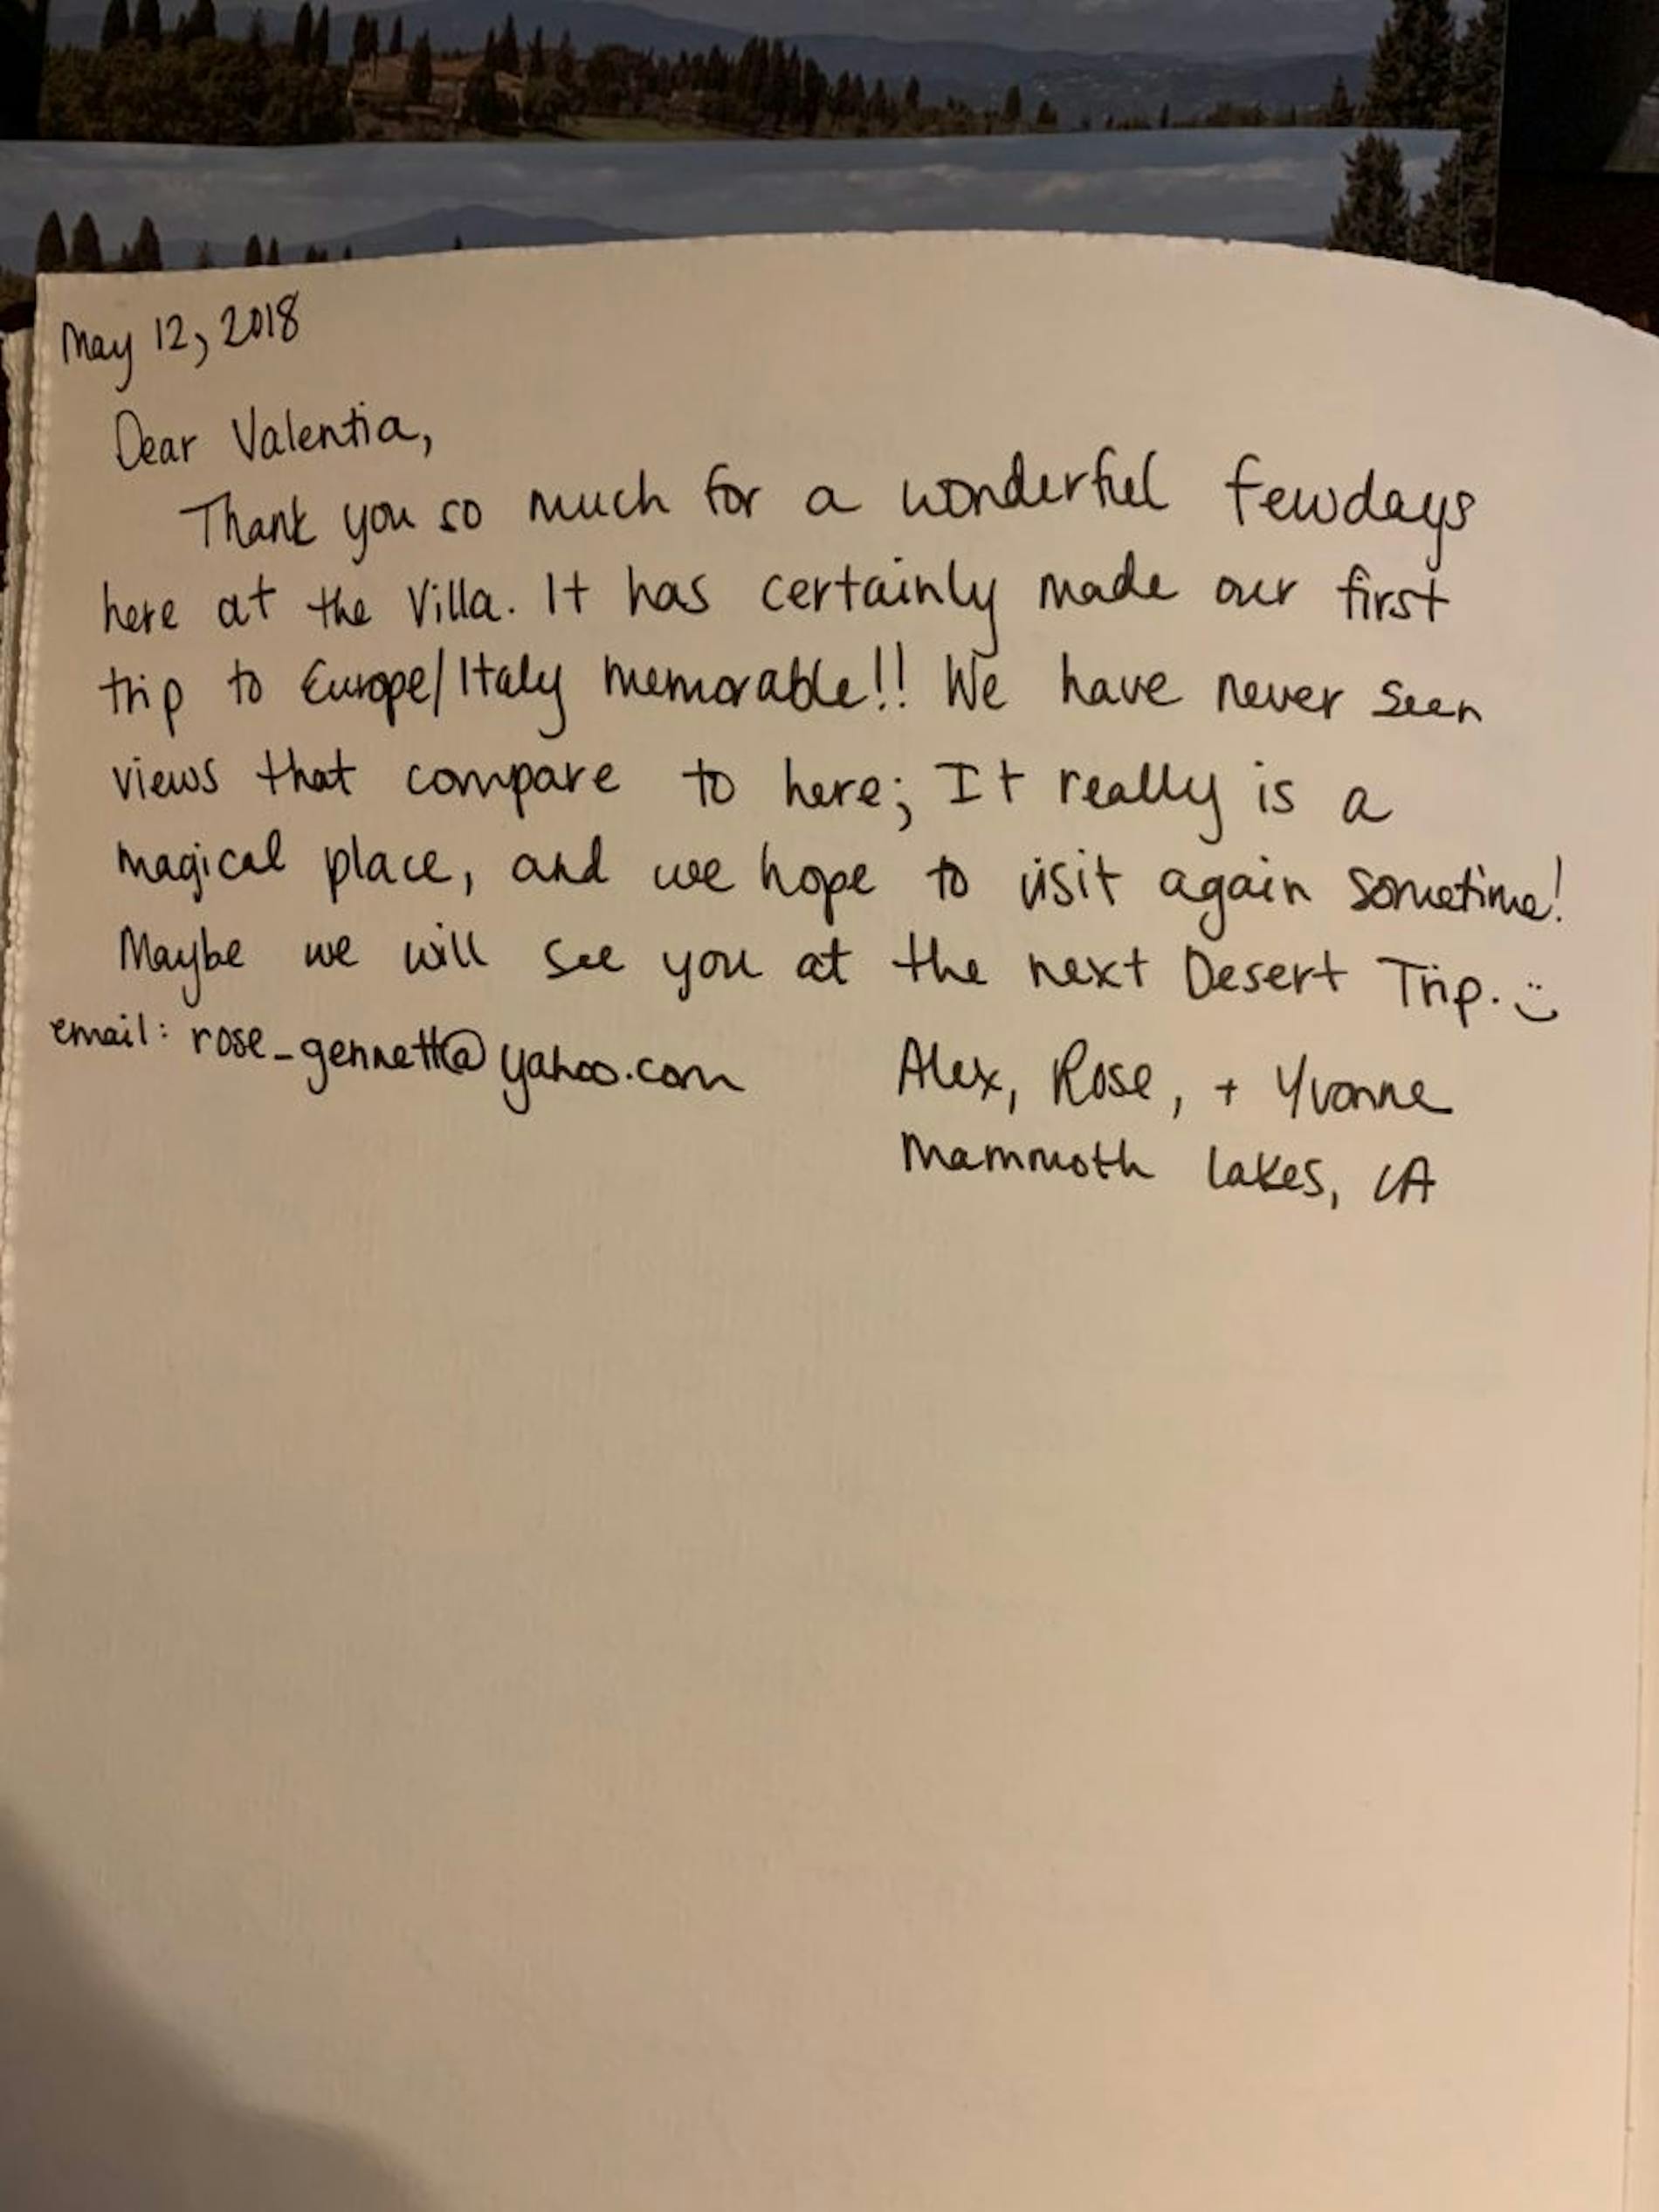 May 12, 2018
Dear Valentia,
Thank you so much for a wonderful few days
here at the Villa. It has certainly made our first
trip to Europe/Italy memorable!! We have never seen
views that compare to here; It really is a
magical place, and we hope to visit again sometime!
Maybe we will see you at the next Desert Trip. :)
email: rose_gennett@yahoo.com
Alex, Rose, + Yvonne
Mammoth Lakes, CA